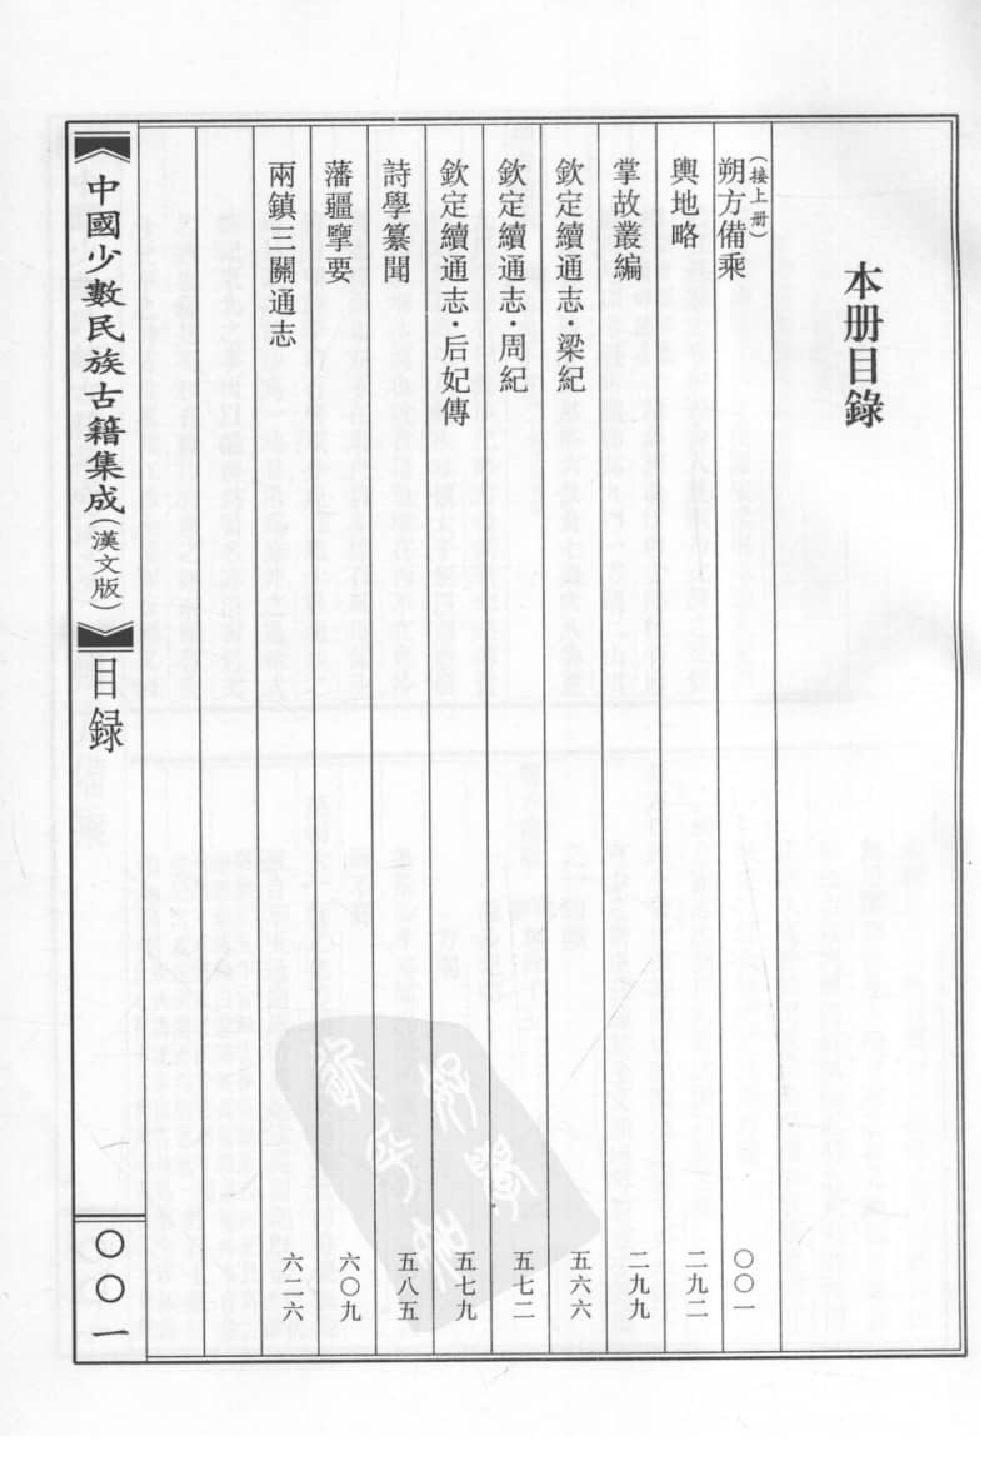 本册目錄
(接上册)
朔方備乘 〇〇一
輿地略 二九二
掌故叢編 二九九
欽定續通志·梁紀 五六六
欽定續通志·周紀 五七二
欽定續通志·后妃傳 五七九
詩學纂聞 五八五
藩疆擥要 六〇九
兩鎮三關通志 六二六
《中國少數民族古籍集成(漢文版)》目録 〇〇一